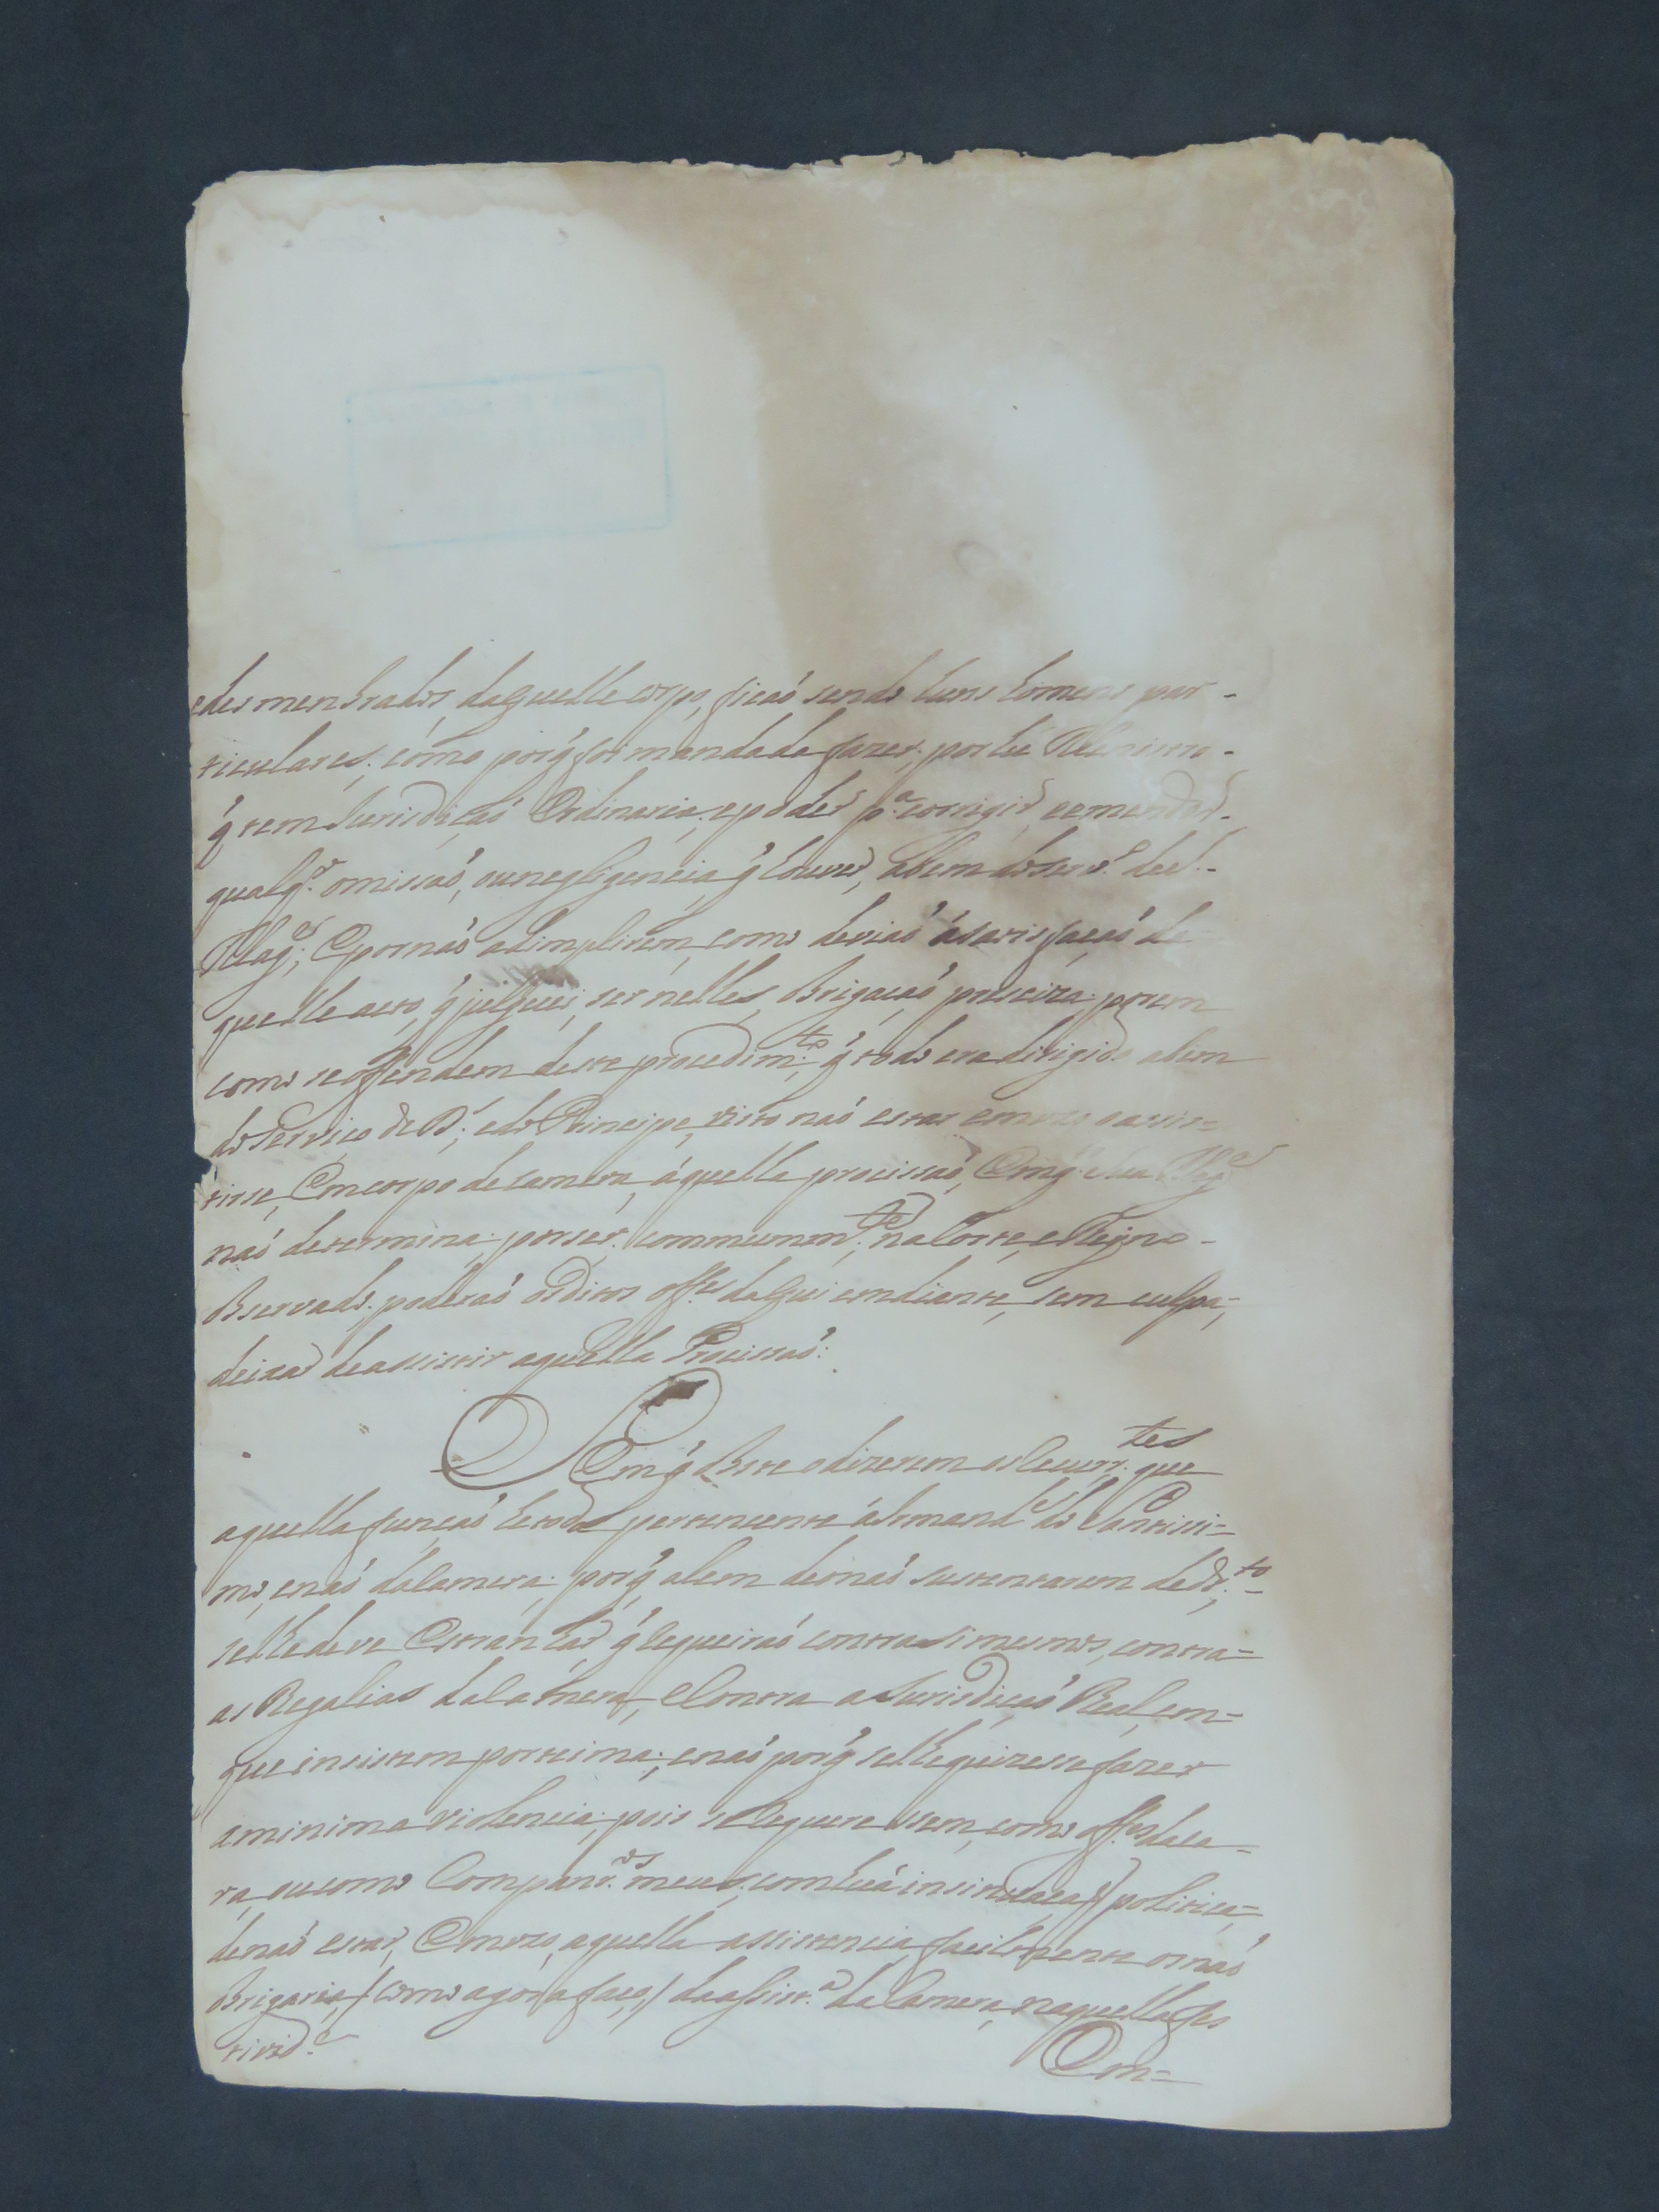 edesmenbrados, daquelle corpo, ficaó sendo huns homens par-
ticulares; cómo porq̃ foi mandada fazer, por hú Menistro-
q̃ tem Jurisdicaó Ordinaria, e poder p.ª corrigir, e emendar-
qualq.r omissaó, ou negligencia q̃ houver, alem do serv.º de S.-
Mag.e; E por naó adimplirem, como deviaó á satisfaçaó da-
quelle acto, q̃ julguei, ser nelles, obrigacaó preseiza: porem
como se offendem deste procedim.to, q̃ todo era dirigido a bem
do Serviço de D.s, e do Principe, visto naó estar em uzo o assis=
tirse, Em corpo de camera, áquella procissaó, Emq.to Sua Mag.e
naó determina; por ser, commumm.te, na Corte, e Reyno-
observado; poderaó os ditos off.es daqui em diente, sem culpa=,
deixar de assistir aquella Procissaó:
Em q̃ obste o dizerem os Recurr.tes que
aquella funcaó he toda pertencente á Irmand.e do Santissi=
mo, e naó da Camera; porq̃ alem de o naó sustentarem de dr.to=
se lhe deve Estranhar q̃ requeiraó contra si mesmos, contra=
as Regalias da Camera, e Contra a Jurisdicaó Real, com=
que insistem por teima; e naó porq̃ se lhe quizesse fazer
a minima violencia; pois se requeressem, como off.es da Ca-
ra, ou como Companr.os meus, com húa insinuacaó politica=,
de naó estar, Em uzo, aquella assistencia, facilmente os naó
obrigaria, /como agora faço,/ da assist.ª da Camera, naquella fes
tivid.e
Em=